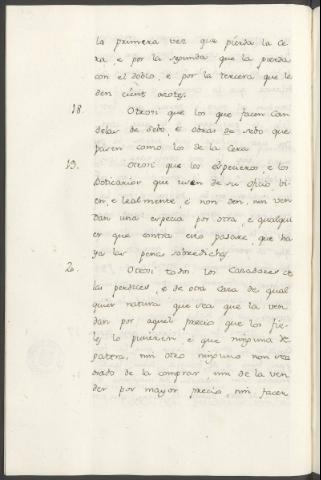 la primera vez que pierda la Ce
ra, e por la segunda que la pierda
con el doblo, e por la tercera que le
den cient azotes.
18. Otrosi que los que facen Can
delas de Sebo, e obras de sebo que
pasen como los de la Cera
19. Otrosi que los Especieros, e los
Boticarios que usen de su oficio bi
en, e lealmente, e non den, nin ven
dan una especia por otra, e qualqui
er que contra esto pasare, que ha
ya las penas sobredichas
2. Otrosi todos los Cazadores de
las perdices, e de otra Caza de qual
quier natura que sea que la ven
dan por aquel precio que los fie
les lo pusieren, e que ninguna Re
gatera, nin otro ninguno non sea
osado de la comprar, nin de la ven
der por mayor precio, nin facer